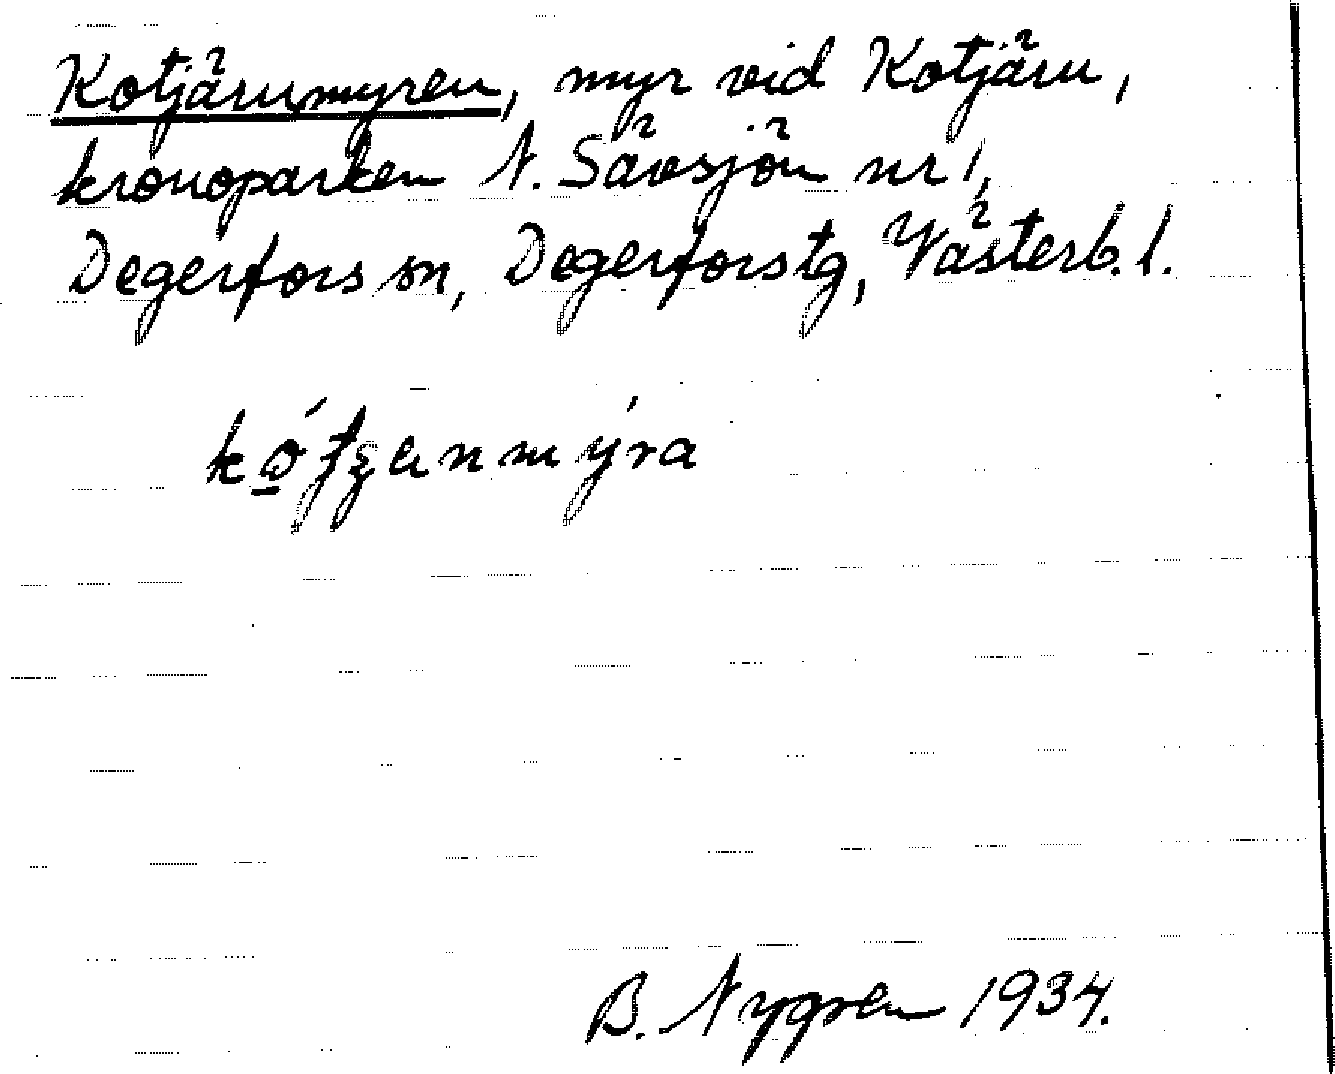 Kotjärnmyren, myr vid Kotjärn,
kronoparken N. Sävsjön nr 1,
Degerfors sn, Degerfors tg, Västerb. l.
B. Nygren 1934.